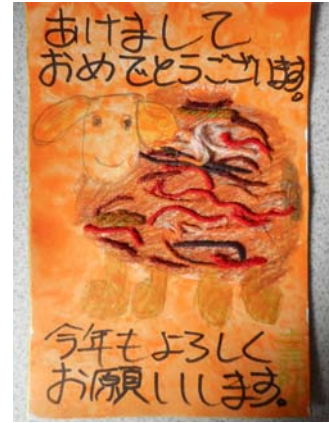 あけまして
おめでとうございます。
今年もよろしく
お願いします。